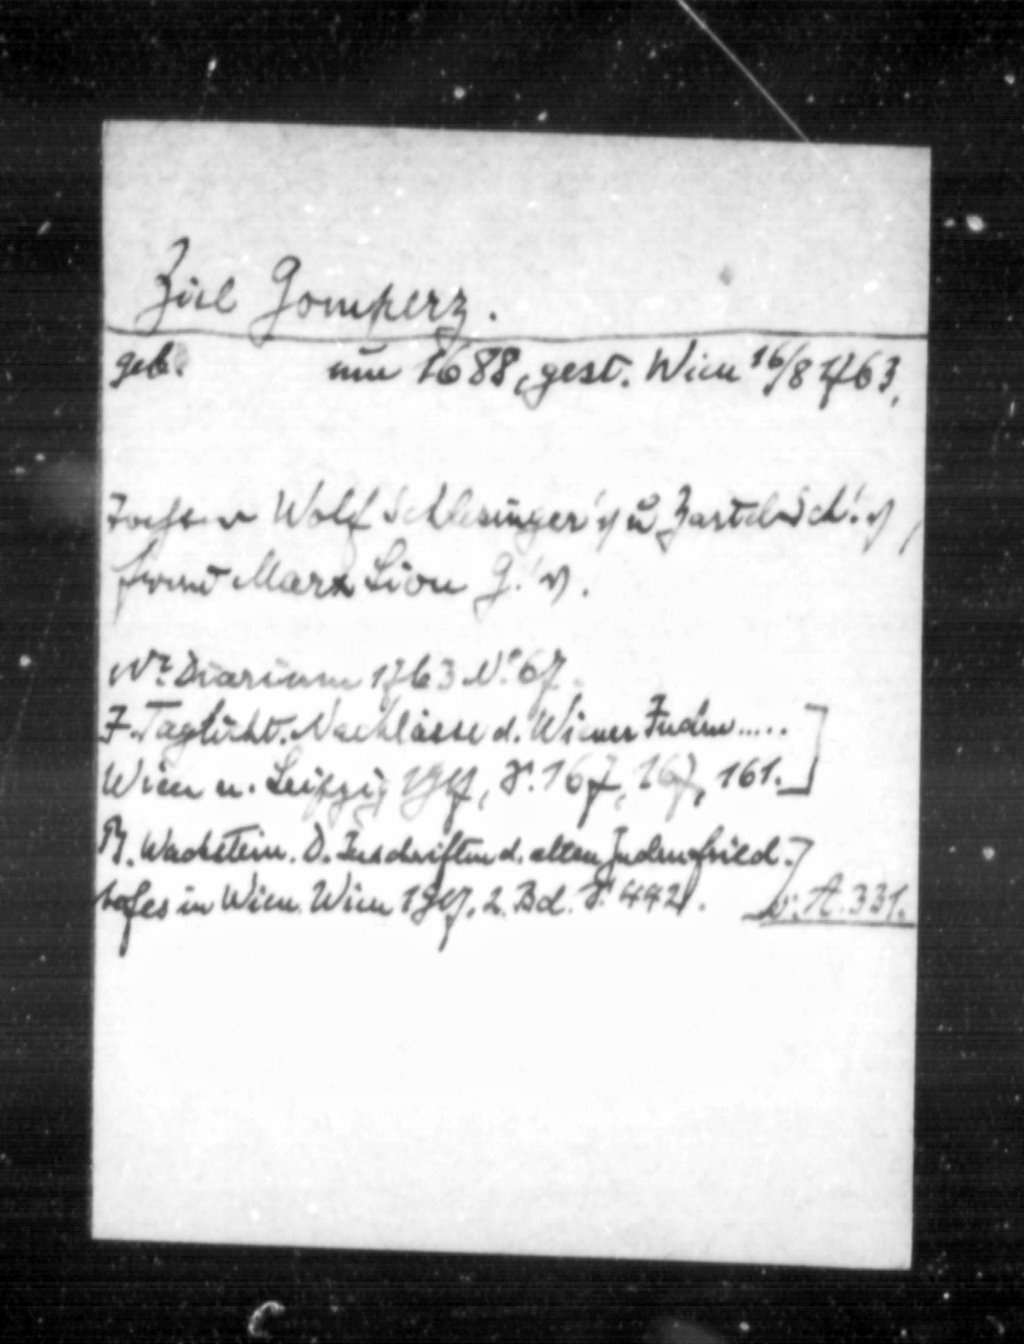 Ziel Gomperz.
geb. um 1688, gest. Wien 16/8 1763,
Wolf Schlesinger u.
Frau Marx Lion G.
Wr. Diarium 1763 No. 67.
J. Taglicht. Nachlässe d. Wiener Juden.....
Wien u. Leipzig 1917, S. 167, 167, 161.
B. Wachstein. D. Inschriften d. alten Judenfried-
hofes in Wien. Wien 1917. 2. Bd. S. 442. v. A. 331.